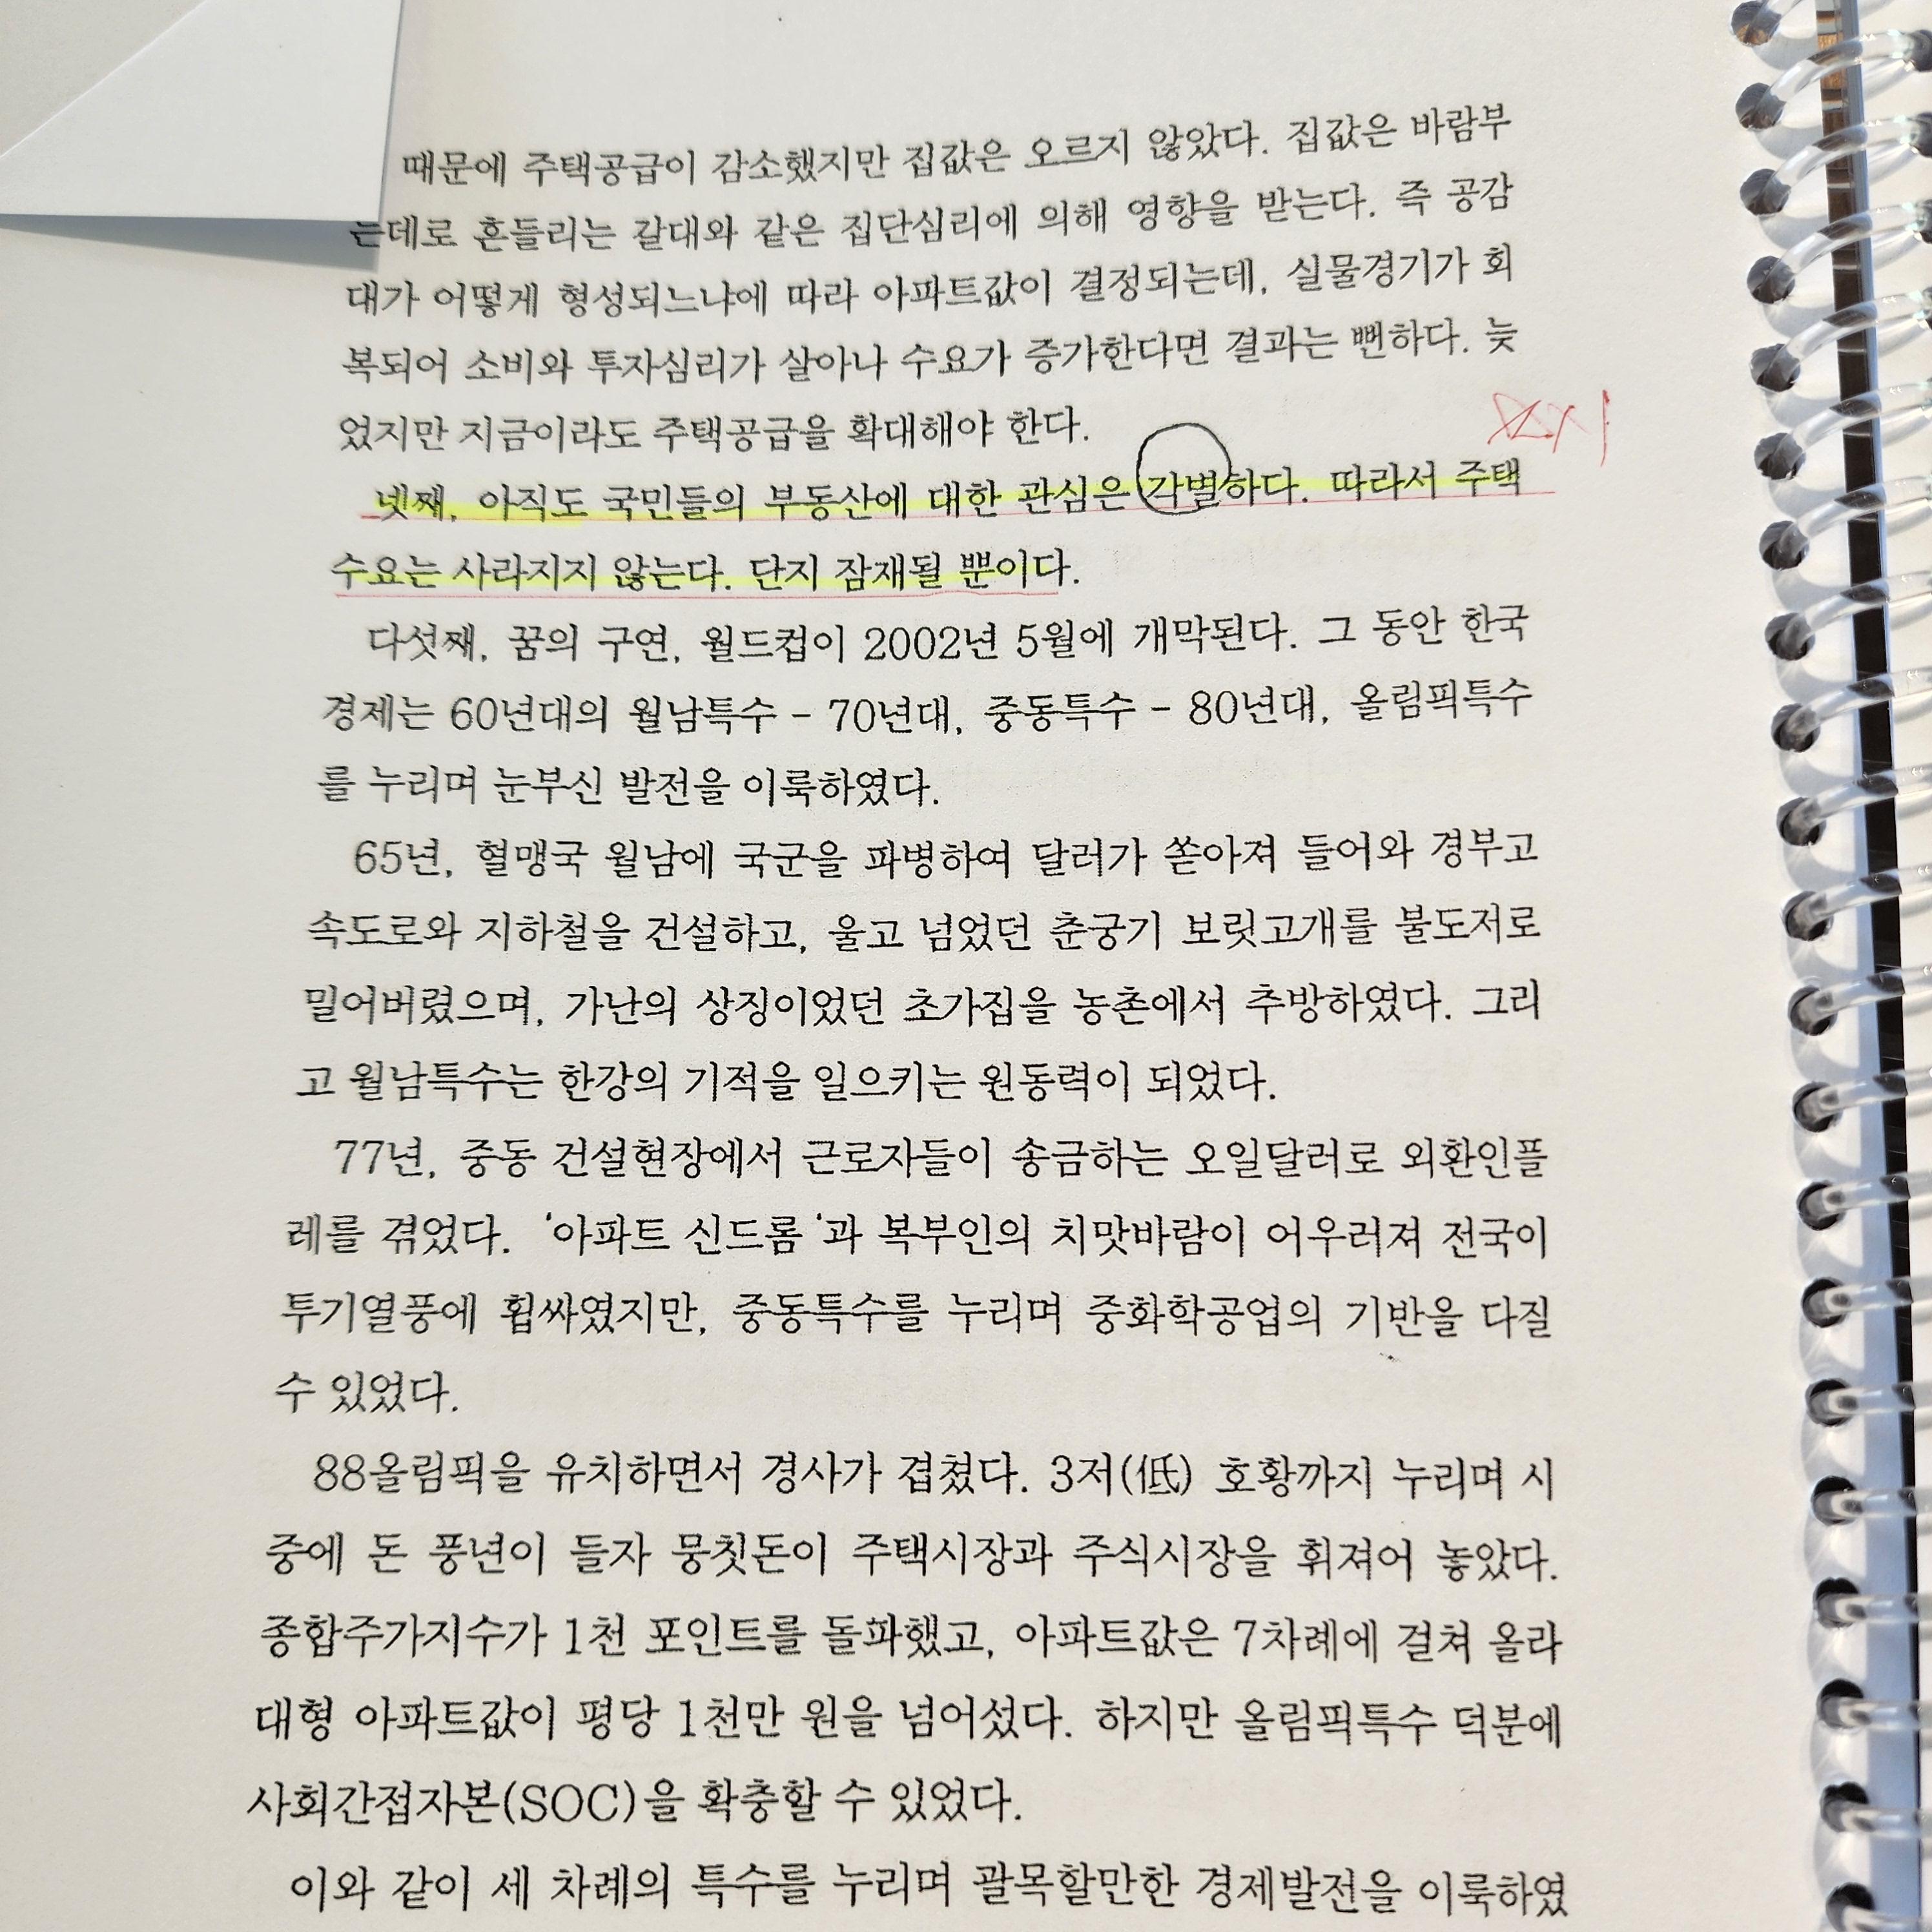 때문에 주택공급이 감소했지만 집값은 오르지 않았다. 집값은 바람부
는데로 흔들리는 갈대와 같은 집단심리에 의해 영향을 받는다. 즉 공감
대가 어떻게 형성되느냐에 따라 아파트값이 결정되는데, 실물경기가 회
복되어 소비와 투자심리가 살아나 수요가 증가한다면 결과는 뻔하다. 늦
었지만 지금이라도 주택공급을 확대해야 한다.
넷째, 아직도 국민들의 부동산에 대한 관심은 각별하다. 따라서 주택
수요는 사라지지 않는다. 단지 잠재될 뿐이다.
다섯째, 꿈의 구연, 월드컵이 2002년 5월에 개막된다. 그 동안 한국
경제는 60년대의 월남특수 - 70년대, 중동특수 - 80년대, 올림픽특수
를 누리며 눈부신 발전을 이룩하였다.
65년, 혈맹국 월남에 국군을 파병하여 달러가 쏟아져 들어와 경부고
속도로와 지하철을 건설하고, 울고 넘었던 춘궁기 보릿고개를 불도저로
밀어버렸으며, 가난의 상징이었던 초가집을 농촌에서 추방하였다. 그리
고 월남특수는 한강의 기적을 일으키는 원동력이 되었다.
77년, 중동 건설현장에서 근로자들이 송금하는 오일달러로 외환인플
레를 겪었다. ‘아파트 신드롬‘과 복부인의 치맛바람이 어우러져 전국이
투기열풍에 휩싸였지만, 중동특수를 누리며 중화학공업의 기반을 다질
수 있었다.
88올림픽을 유치하면서 경사가 겹쳤다. 3저(低) 호황까지 누리며 시
중에 돈 풍년이 들자 뭉칫돈이 주택시장과 주식시장을 휘져어 놓았다.
종합주가지수가 1천 포인트를 돌파했고, 아파트값은 7차례에 걸쳐 올라
대형 아파트값이 평당 1천만 원을 넘어섰다. 하지만 올림픽특수 덕분에
사회간접자본(SOC)을 확충할 수 있었다.
이와 같이 세 차례의 특수를 누리며 괄목할만한 경제발전을 이룩하였